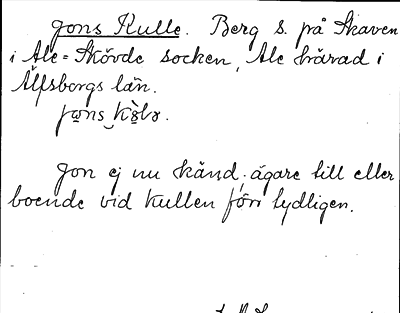 Jons Kulle. Berg S. på Skaven
i Ale-Skövde socken, Ale härad i
Älfsborgs län.
Jon ej nu känd, ägare till eller
boende vid kullen förr tydligen.